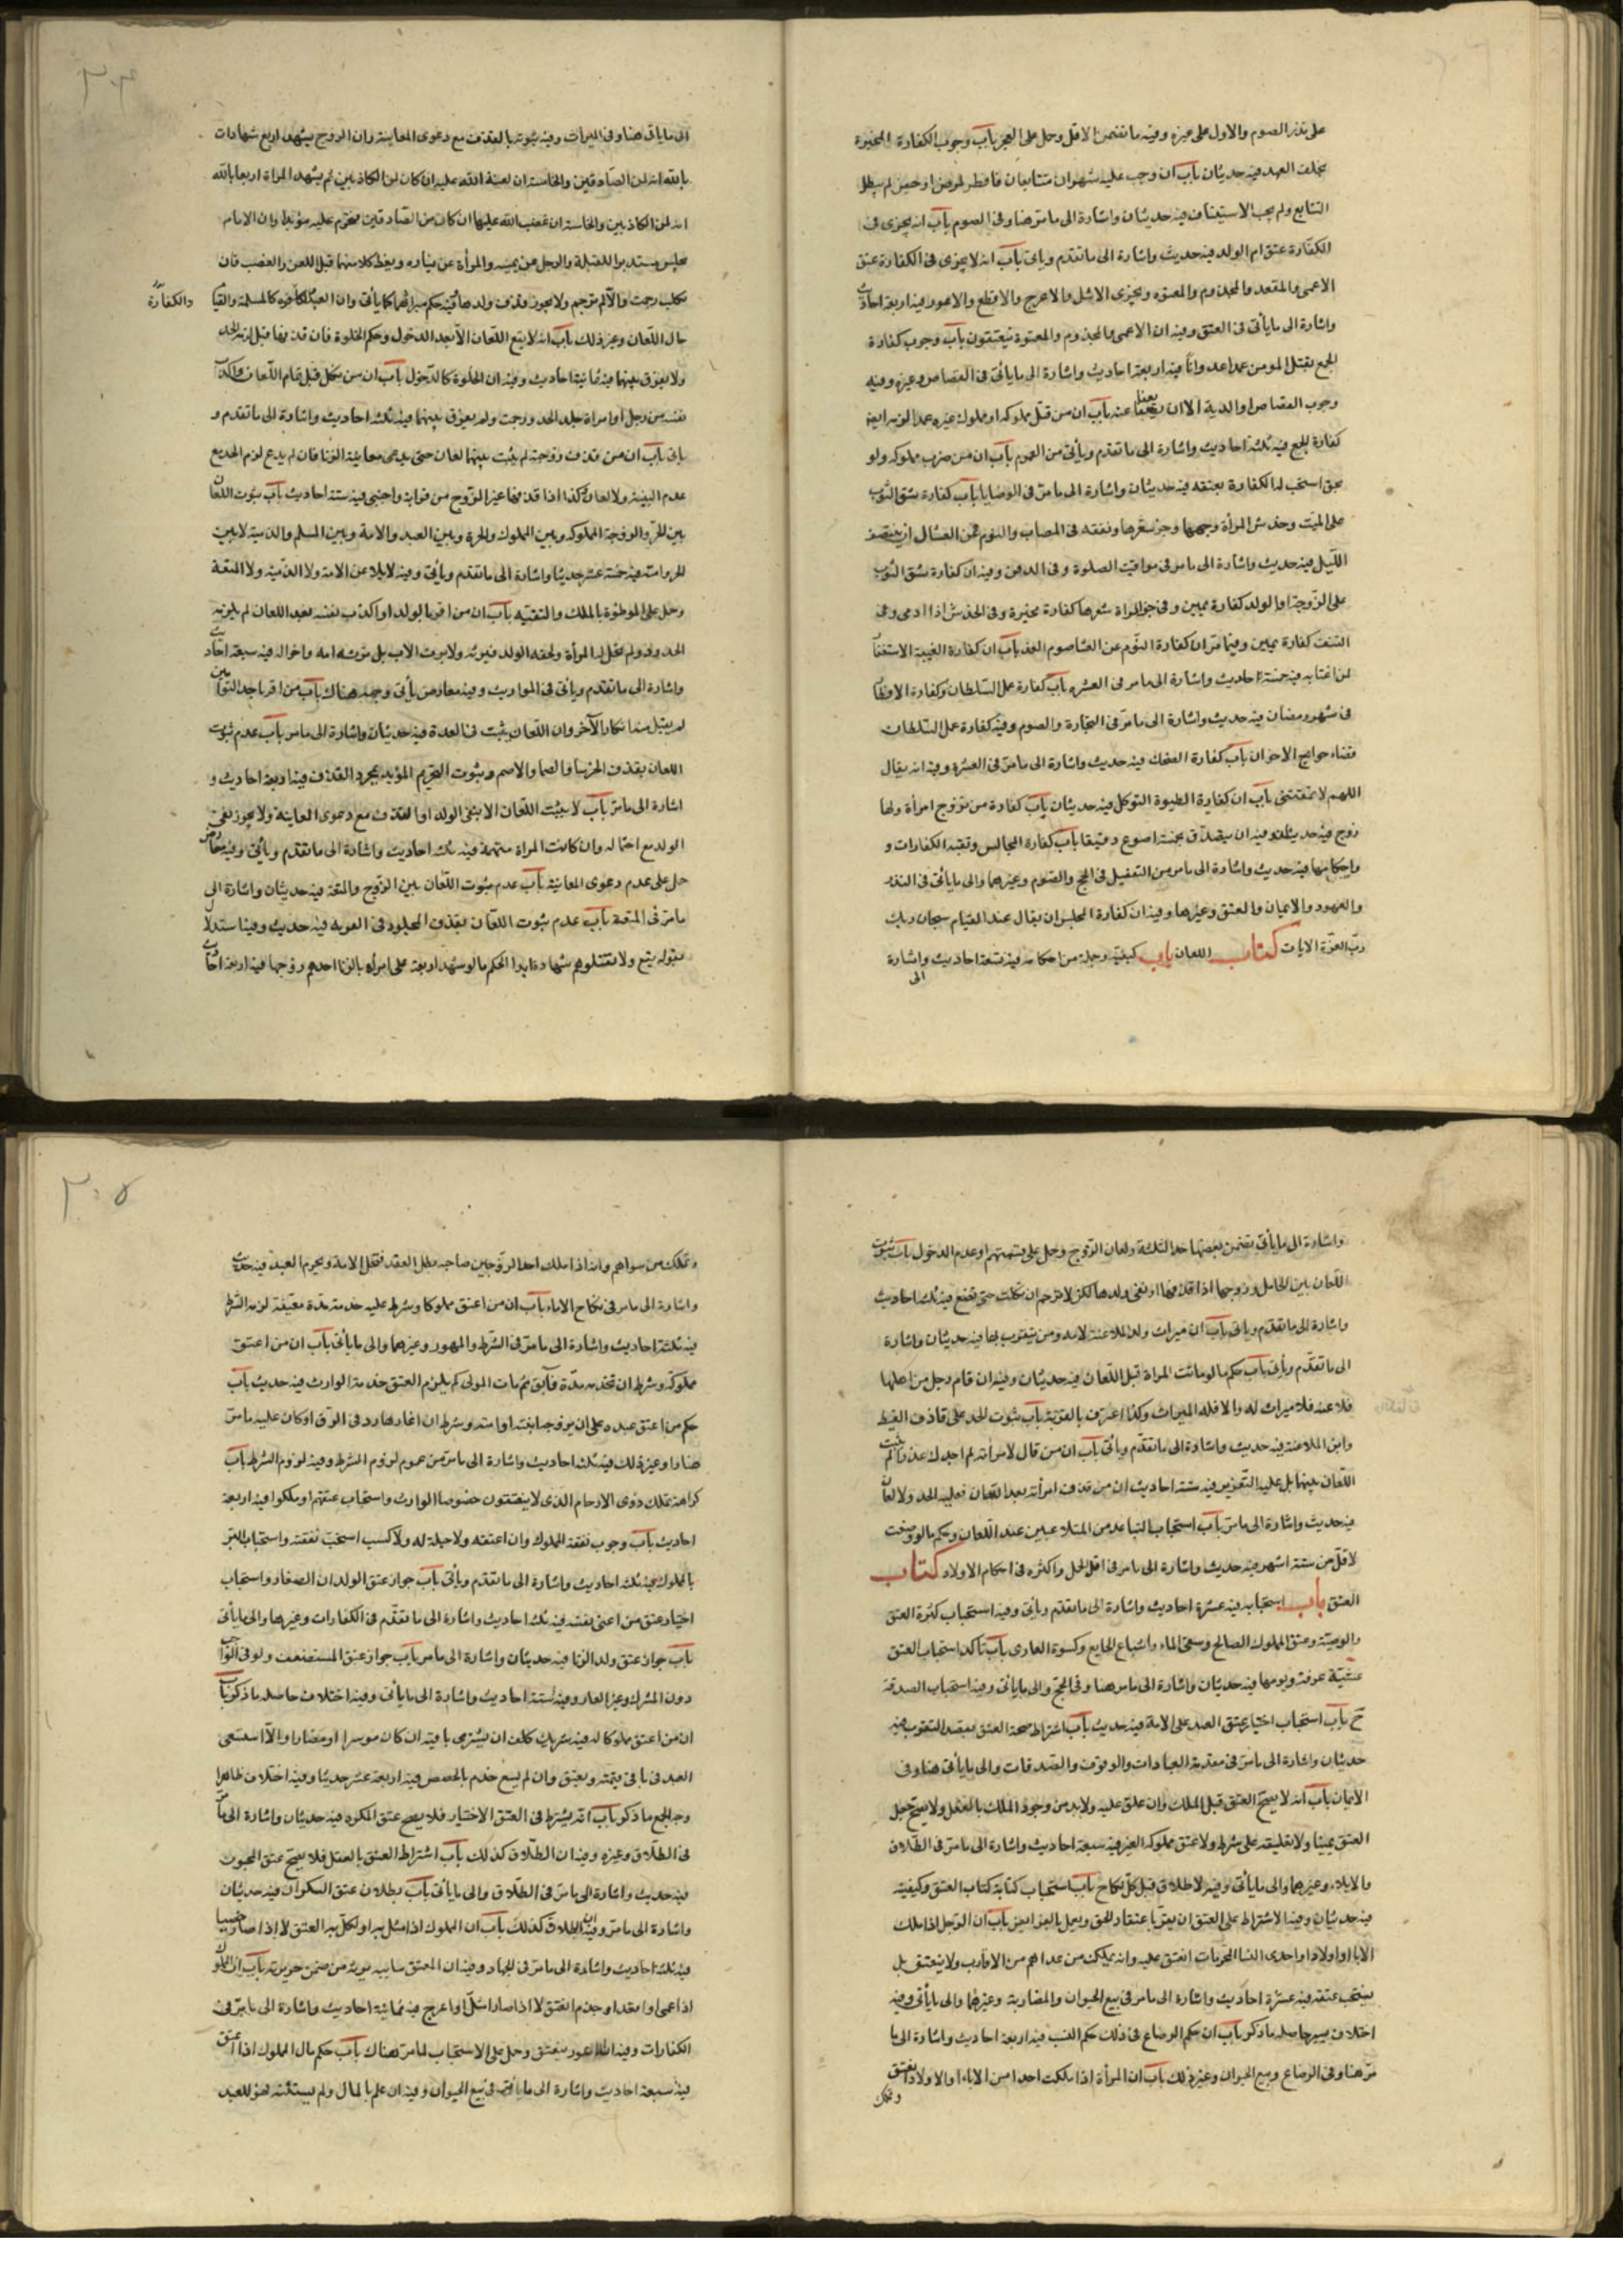 على نذر الصوم والاول على غيره وفيه ما تضمن الاقل وحمل على العجز باب وجوب الكفارة المخيرة
بخلف العهد فيه حديثان باب ان من وجب عليه شهران متتابعان فافطر لمرض او حيض لم يبطل
التتابع ولم يجب الاستيناف فيه حديثان واشارة الى ما مر هنا وفى الصوم باب انه يجزى فى
الكفارة عتق ام الولد فيه حديث واشارة الى ما تقدم وياتى باب انه لا يجزى فى الكفارة عتق
الاعمى والمقعد والمجذوم والمعتوه ويجزى الاشل والاعرج والاقطع والاعور فيه اربعة احاديث
واشارة الى ما يأتى فى العتق وفيه ان الاعمى والمجذوم والمعتوه ينعتقون باب وجوب كفارة
الجمع بقتل المومن عمدا عدوانا فيه اربعة احاديث واشارة الى ما يأتى فى القصاص وغيره وفيه
وجوب القصاص او الدية الا ان يعفا عنه باب ان من قتل مملوكه او مملوك غيره عمدا لزمه ايضا
كفارة الجمع فيه ثلثة احاديث واشارة الى ما تقدم ويأتى من العموم باب ان من ضرب مملوكه ولو
بحق استحب له الكفارة بعتقه فيه حديثان واشارة الى ما مر فى الوصايا باب كفارة شق الثوب
على الميت وخدش المرأة وجهها وجز شعرها ونتفه فى المصاب والنوم عن العشا الى ان ينتصف
الليل فيه حديث واشارة الى ما مر فى مواقيت الصلوة وفى الدفن وفيه ان كفارة شق الثوب
على الزوجة او الولد كفارة يمين وفى جز المراة شعرها كفارة مخيرة وفى الخدش اذا ادمى وفى
النتف كفارة يمين وفيما مر ان كفارة النوم عن العشا صوم الغد باب ان كفارة الغيبة الاستغفار
لمن اغتابه فيه خمسة احاديث واشارة الى ما مر فى العشره باب كفارة عمل السلطان وكفارة الافطار
فى شهر رمضان فيه حديث واشارة الى ما مر فى التجارة والصوم وفيه كفارة عمل السلطان
قضاء حوايج الاخوان باب كفارة الضحك فيه حديث واشارة الى ما مر فى العشرة وفيه انه يقال
اللهم لا تمقتنى باب ان كفارة الطيرة التوكل فيه حديثان باب كفارة من تزوج امرأة ولها
زوج فيه حديثان وفيه ان يتصدق بخمسة اصوع دقيقا باب كفارة المجالس وتقية الكفارات و
واحكامها فيه حديث واشارة الى ما مر من التفصيل فى الحج والصوم وغيرهما والى ما يأتى فى النذر
والعهود والايمان والعتق وغيرها وفيه ان كفارة المجلس ان يقال عند القيام سبحان ربك
رب العزة الايات كتاب اللعان باب كيفيته وجملة من احكامه فيه تسعة احاديث واشارة
الى
٣٠٤
الى ما ياتى هنا وفى الميراث وفيه ثبوته بالقذف مع دعوى المعاينة وان الزوج يشهد اربع شهادات
بالله انه لمن الصادقين والخامسة ان لعنة الله عليه ان كان من الكاذبين ثم يشهد المراة اربعا بالله
انه لمن الكاذبين والخامسة ان غضب الله عليها ان كان من الصادقين فتحرم عليه مؤبدا وان الامام
يجلس مستدبرا للقبلة والرجل عن يمينه والمرأة عن يساره ويعظ كلا منهما قبل اللعن والغضب فان
نكلت رجمت والا لم ترجم ولا يجوز قذف ولدها وفيه حكم ميراثهما كما يأتى وان العبد كالحر والامة كالمسلمة والقيا
والكفارة
حال اللعان وغير ذلك باب انه لا يقع اللعان الا بعد الدخول وحكم الخلوة فان قذفها قبل لزمه الحد
ولا يفرق بينهما فيه ثمانية احاديث وفيه ان الخلوة كالدخول باب ان من نكل قبل تمام اللعان او اكذب
نفسه من رجل او امراة جلد الحد ورجمت ولم يفرق بينهما فيه ثلث احاديث واشارة الى ما تقدم و
ياتى باب ان من قذف زوجته لم يثبت بينهما لعان حتى يدعى معاينة الزنا فان لم يدع لزم الحد مع
عدم البينة ولا لعان وكذا اذا قذفها غير الزوج من قرابة واجنبى فيه ستة احاديث باب ثبوت اللعان
بين الحر والزوجة المملوكة وبين المملوك والحرة وبين العبد والامة وبين المسلم والذمية لا بين
الحر وامته فيه خمسة عشر حديثا واشارة الى ما تقدم ويأتى وفيه لا يلاعن الامة ولا الذمية ولا المتعة
وحمل على الموطؤة بالملك والتقية باب ان من اقر بالولد او اكذب نفسه بعد اللعان لم يلزمه
الحد ولم تحل له المرأة ولحقه الولد فيرثه ولا يرث الاب بل ترثه امه واخواله فيه سبعة احاديث
واشارة الى ما تقدم ويأتى فى المواريث وفيه معارض يأتى وجهه هناك باب من اقر باحد التوأمين
لم يقبل منه انكار الآخر وان اللعان يثبت فى العدة فيه حديثان واشارة الى ما مر باب عدم ثبوت
اللعان بقذف الخرسا والصما والاصم وثبوت التحريم المؤبد بمجرد القذف فيه اربعة احاديث و
اشارة الى ما مر باب لا يثبت اللعان الا بنفى الولد او القذف مع دعوى المعاينة ولا يجوز نفى
الولد مع احتماله وان كانت المراة متهمة فيه ثلثة احاديث واشارة الى ما تقدم ويأتى وفيه معارض
حمل على عدم دعوى المعاينة باب عدم ثبوت اللعان بين الزوج والمتعة فيه حديثان واشارة الى
ما مر فى المتعة باب عدم ثبوت اللعان بقذف المجلود فى الفرية فيه حديث وفيه استدلال
بقوله تع ولا تقبلوا لهم شهادة ابدا الحكم ما لو شهد اربعة على امرأة بالزنا احدهم زوجها فيه اربعة احاديث
واشارة الى ما يأتى تضمن بعضها حد الثلثة ولعان الزوج وحمل على تهمتهم او عدم الدخول باب ثبوت
اللعان بين الحامل وزوجها اذا قذفها او نفى ولدها لكن لا ترجم ان نكلت حتى تضع فيه ثلث احاديث
واشارة الى ما تقدم وياتى باب ان ميراث ولد الملاعنة لامه ومن يتقرب بها فيه حديثان واشارة
الى ما تقدم ويأتى باب حكم ما لو ماتت المراة قبل اللعان فيه حديثان وفيه ان قام رجل من اهلها
فلاعنه فلا ميراث له والا فله الميراث وكذا اعترف بالفرية باب ثبوت الحد على قاذف اللقيط
وابن الملاعنة فيه حديث واشارة الى ما تقدم ويأتى باب ان من قال لامرأته لم اجدك عذراء لم يثبت
اللعان بينهما بل عليه التعزير فيه ستة احاديث ان من قذف امرأته بعد اللعان فعليه الحد ولا لعان
فيه حديث واشارة الى ما مر باب استحباب التباعد من المتلاعنين عند اللعان وحكم ما لو وضعت
لاقل من ستة اشهر فيه حديث واشارة الى ما مر فى اقل الحمل واكثره فى احكام الاولاد كتاب
العتق باب استحبابه فيه عشرة احاديث واشارة الى ما تقدم وياتى وفيه استحباب كثرة العتق
والوصية وعتق المملوك الصالح وسقى الماء واشباع الجايع وكسوة العارى باب تأكد استحباب العتق
عشية عرفة ويومها فيه حديثان واشارة الى ما مر هنا وفى الحج والى ما ياتى وفيه استحباب الصدقة
ح باب استحباب اختيار عتق العبد على الامة فيه حديث باب اشتراط صحة العتق بقصد التقرب فيه
حديثان واشارة الى ما مر فى مقدمة العبادات والوقوف والصدقات والى ما يأتى هنا وفى
الايمان باب انه لا يصح العتق قبل الملك وان علق عليه ولا بد من وجود الملك بالفعل ولا يصح جعل
العتق يمينا ولا تعليقه على شرط ولا عتق مملوك الغير فيه سبعة احاديث واشارة الى ما مر فى الطلاق
والايلاء وغيرها والى ما يأتى وفيه لا طلاق قبل كل نكاح باب استحباب كتابة كتاب العتق وكيفيته
فيه حديثان وفيه الاشتراط على العتق ان يقر باعتقاد الحق ويعمل بالفرايض باب ان الرجل اذا ملك
الابا او اولادا او احدى النسا المحرمات انعتق عليه وانه يملك من عداهم من الاقارب ولا ينعتق بل
يستحب عتقه فيه عشرة احاديث واشارة الى ما مر فى بيع الحيوان والمضاربة وغيرها والى ما يأتى وفيه
اختلاف يسير حاصله ما ذكر باب ان حكم الرضاع فى ذلك حكم النسب فيه اربعة احاديث واشارة الى ما
مر هنا وفى الرضاع وبيع الحيوان وغير ذلك باب ان المرأة اذا ملكت احدا من الاباء او الاولاد انعتق
وتملك
٣٠٥
وتملك من سواهم وانه اذا ملك احد الزوجين صاحبه بطل العقد فتحل الامة ويحرم العبد فيه حديث
واشارة الى ما مر فى نكاح الاماء باب ان من اعتق مملوكا وشرط عليه خدمته مدة معينة لزمه الشرط
فيه ثلثة احاديث واشارة الى ما مر فى الشرط والمهور وغيرهما والى ما يأتى باب ان من اعتق
مملوكه وشرط ان تخدمه مدة فابق ثم مات المولى لم يلزم العتق خدمة الوارث فيه حديث باب
حكم من اعتق عبده على ان يزوجه ابنته او امته وشرط ان اغارها رد فى الرق او كان عليه ما مر
هنا وغير ذلك فيه ثلثة احاديث واشارة الى ما مر من عموم لزوم الشرط وفيه لزوم الشرط باب
كراهة تملك ذوى الارحام الذى لا ينعتقون خصوصا الوارث واستحباب عتقهم او ملكوا فيه اربعة
احاديث باب وجوب نفقة المملوك وان اعتقه ولا حيلة له ولا كسب استحب نفقته واستحباب البر
بالمملوك فيه ثلثة احاديث واشارة الى ما تقدم ويأتى باب جواز عتق الولدان الصغار واستحباب
اختيار عتق من اغنى نفسه فيه ثلث احاديث واشارة الى ما تقدم فى الكفارات وغيرها والى ما يأتى
باب جواز عتق ولد الزنا فيه حديثان واشارة الى ما مر باب جواز عتق المستضعف ولو فى الواجب
دون المشرك وغير العارف فيه ستة احاديث واشارة الى ما يأتى وفيه اختلاف حاصله ما ذكر باب
ان من اعتق مملوكا له فيه شريك كلف ان يشترى باقيه ان كان موسرا او مضارا والا استسعى
العبد فى باقى قيمته وينعتق وان لم يسع خدم بالحصص فيه اربعة عشر حديثا وفيه اختلاف ظاهرا
وجه الجمع ما ذكر باب انه يشترط فى العتق الاختيار فلا يصح عتق المكره فيه حديثان واشارة الى ما مر
فى الطلاق وغيره وفيه ان الطلاق كذلك باب اشتراط العتق بالعقل فلا يصح عتق المجنون
فيه حديث واشارة الى ما مر فى الطلاق والى ما يأتى باب بطلان عتق السكران فيه حديثان
واشارة الى ما مر وفيه ان الطلاق كذلك باب ان المملوك اذا مثل به او نكل به العتق لا اذا صار خصيا
فيه ثلثة احاديث واشارة الى ما مر فى الجهاد وفيه ان المعتق سايبة يرثه من ضمن جريرته باب ان المملوك
اذا عمى او اقعد او جذم انعتق لا اذا صار اشل او اعرج فيه ثمانية احاديث واشارة الى ما مر فى
الكفارات وفيه ان الاعور ينعتق وحمل على الاستحباب لما مر هناك باب حكم مال المملوك اذا اعتق
فيه سبعة احاديث واشارة الى ما يأتى فى بيع الحيوان وفيه ان علم بالمال ولم يستثنه فهو للعبد